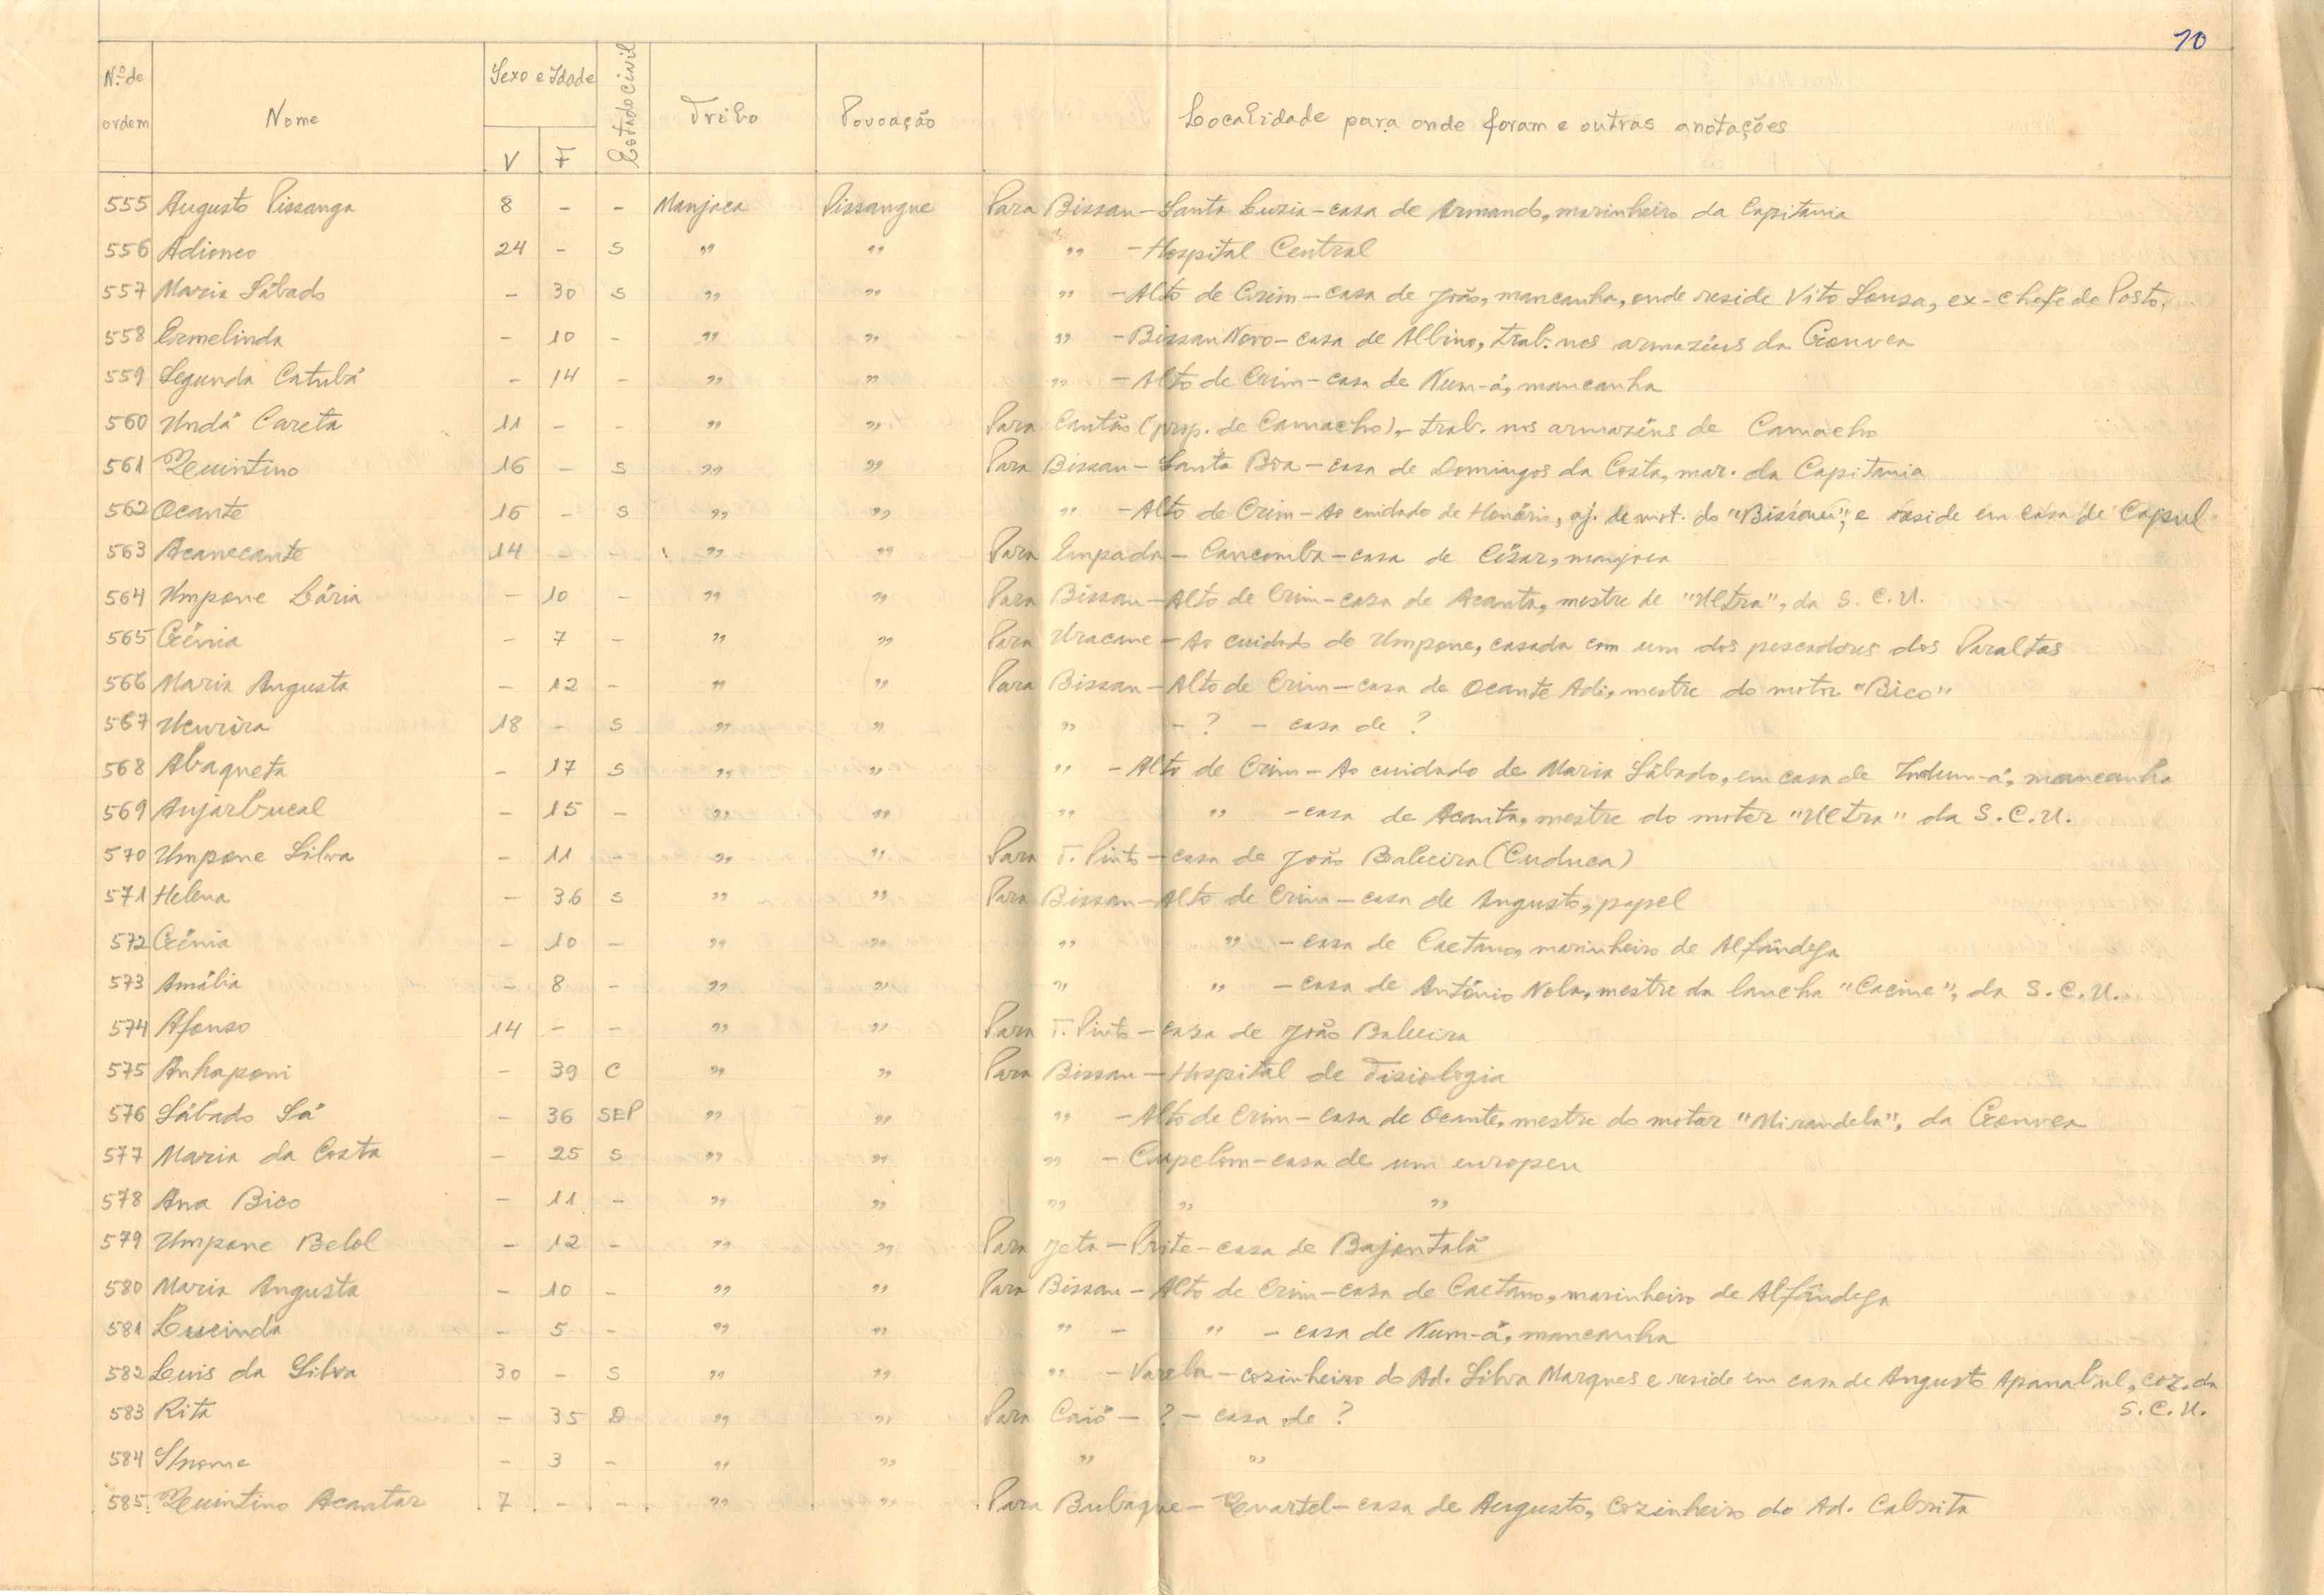 10
Nº de ordem Nome Sexo e Idade V F Estado Civil Tribo Povoação Localidade para onde foram e outras anotações
555 Augusto Pissanga 8 - - Manjaca Pissangue Para Bissau - Santa Luzia - casa de Armando, marinheiro da Capitania
556 Adioneo 24 - S " " " - Hospital Central
557 Maria Sábado - 30 S " " " - Alto de Crim - casa de João, mancanha, onde reside Vito Sousa, ex-chefe de Posto.
558 Ermelinda - 10 - " " " - Bissau Novo - casa de Albino, trab. nos armazéns da Gouvea
559 Segunda Catubá - 14 - " " " - Alto de Crim - casa de Num-á, mancanha
560 Undá Careta 11 - - " " Para Cantão (prop. de Camacho), - trab. nos armazéns de Camacho
561 Quintino 16 - S " " Para Bissau - Santa Boa - casa de Domingos da Costa, mar. da Capitania
562 Ocante 16 - S " " " - Alto de Crim - Ao cuidado de Honório, aj. de mot. do "Bissau", e reside em casa de Capul
563 Acanecante 14 - - " " Para Empada - Cancomba - casa de César, manjaca
564 Umpone Bária - 10 - " " Para Bissau - Alto de Crim - casa de Acanta, mestre de "Ultra", da S. C. U.
565 Génia - 7 - " " Para Uracane - Ao cuidado de Umpone, casada com um dos pescadores dos Paraltas
566 Maria Augusta - 12 - " " Para Bissau - Alto de Crim - casa de Ocante Adi, mestre do motor "Bico"
567 Ucurira 18 - S " " " - ? - casa de ?
568 Abaqueta - 17 S " " " - Alto de Crim - Ao cuidado de Maria Sábado, em casa de Indum-á, mancanha
569 Anjarbucal - 15 - " " " " - casa de Acanta, mestre do motor "Ultra" da S. C. U.
570 Umpone Silva - 11 - " " Para T. Pinto - casa de João Baleeira (Cuduca)
571 Helena - 36 S " " Para Bissau - Alto de Crim - casa de Augusto, papel
572 Génia - 10 - " " " " - casa de Caetano, marinheiro de Alfândega
573 Amália - 8 - " " " " - casa de António Nola, mestre da lancha "Cacine", da S. C. U.
574 Afonso 14 - - " " Para T. Pinto - casa de João Baleeira
575 Anhaponi - 39 C " " Para Bissau - Hospital de Tisiologia
576 Sábado Sá - 36 SEP " " " - Alto de Crim - casa de Ocante, mestre do motor "Mirandela", da Gouvea
577 Maria da Costa - 25 S " " " - Cupelom - casa de um europeu
578 Ana Bico - 11 - " " " " "
579 Umpane Belol - 12 - " " Para Jeta - Prite - casa de Bajantalá
580 Maria Augusta - 10 - " " Para Bissau - Alto de Crim - casa de Caetano, marinheiro de Alfândega
581 Lucinda - 5 - " " " - " - casa de Num-á, mancanha
582 Luis da Silva 30 - S " " " - Varela - cozinheiro do Ad. Silva Marques e reside em casa de Augusto Apanabul, coz. da
S. C. U.
583 Rita - 35 D " " Para Caió - ? - casa de ?
584 S/nome - 3 - " " " "
585 Quintino Acantar 7 - - " " Para Bubaque - Quartel - casa de Augusto, cozinheiro do Ad. Cabrita